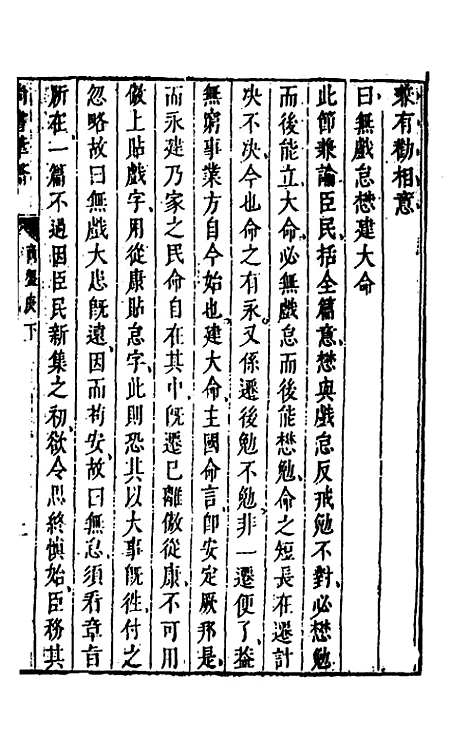 兼有勸相意
曰無戲怠懋建大命
此節兼論臣民括全篇意懋與戲怠反戒勉不對必懋勉
而後能立大命必無戲怠而後能懋勉命之短長在遷計
決不決今也命之有永又係遷後勉不勉非一遷便了益
無窮事業方自今始也建大命主國命言卽安定厥邦是
而永建乃家之民命自在其中旣遷巳離傲從康不可用
傲上貼戲字用從康貼怠字此則恐其以大事旣徃付之
忽略故曰無戲大患旣遠因而茍安故曰無怠須看章旨
所在一篇不過因臣民新集之初欲令思終慎始臣務其
商盤庚下